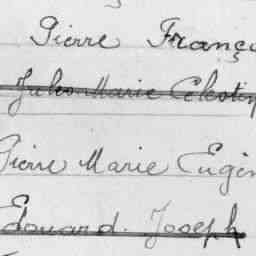 Pierre Franço
Jules Marie Célestin
Pierre Marie Eugèn
Edouard Joseph